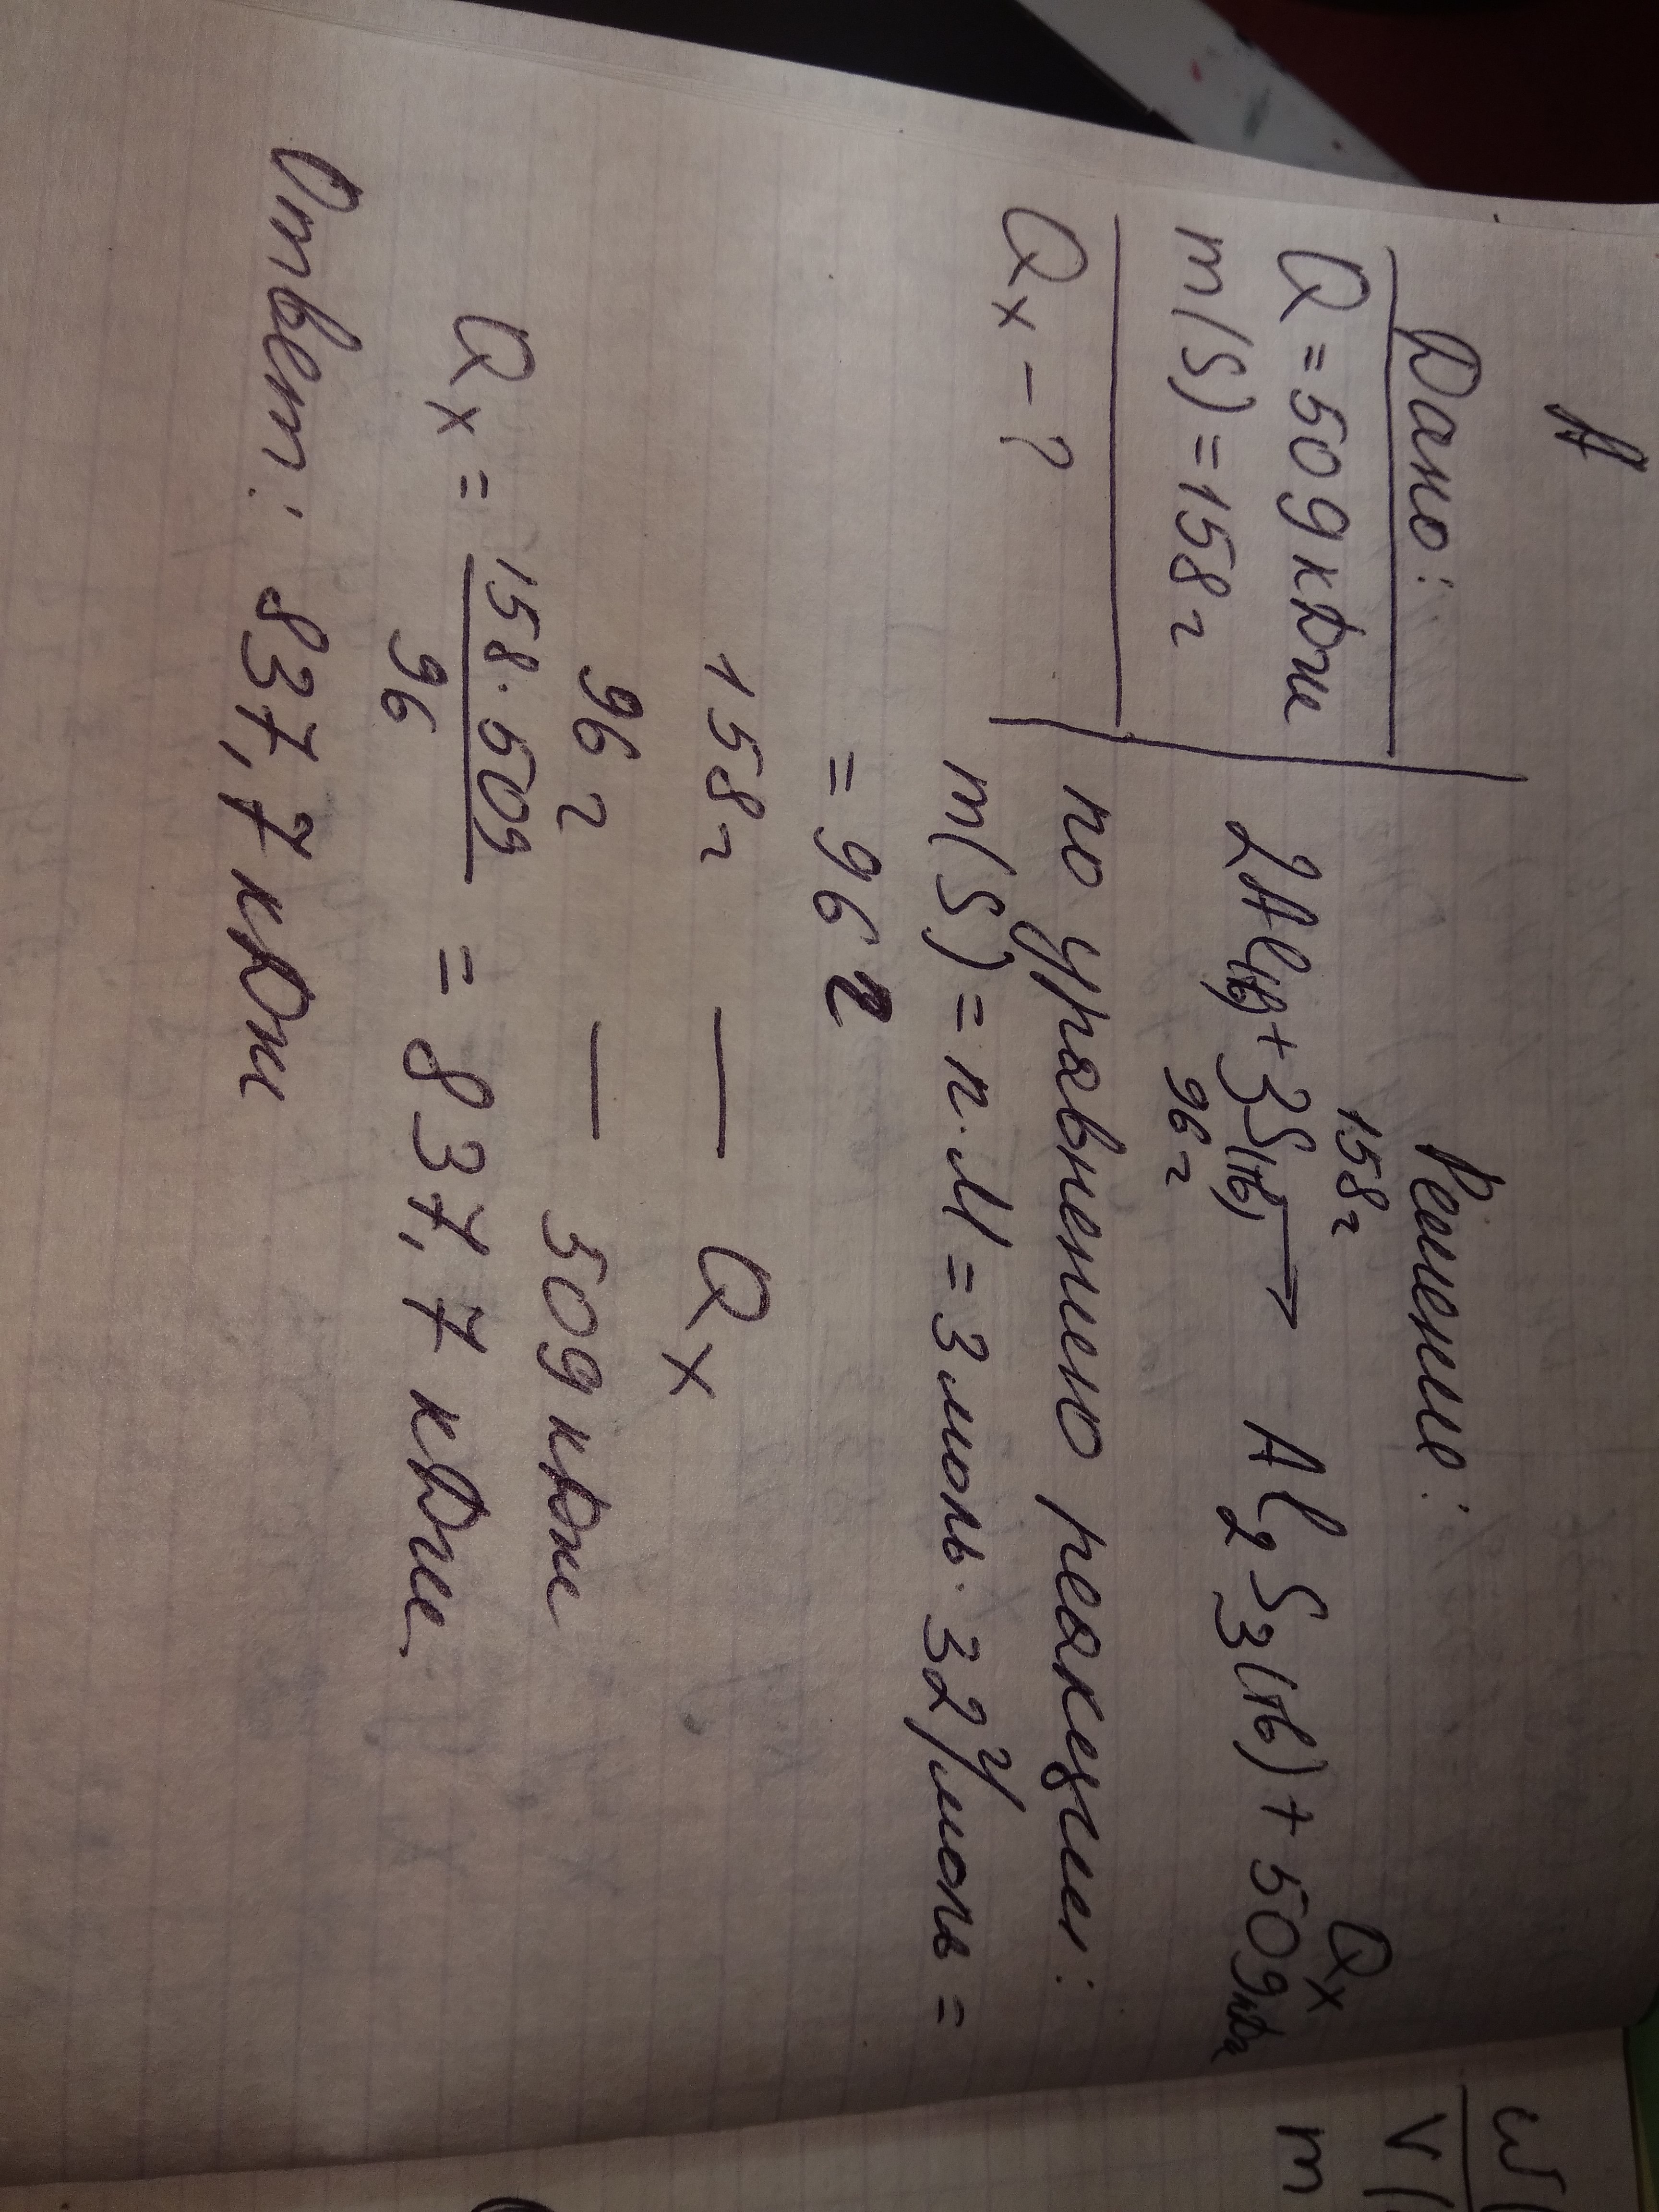 А
Дано:
Q = 509 кДж
m(S) = 158 г
Qx - ?
Решение:
158 г Qx
2Al(тв) + 3S(тв) → Al2S3(тв) + 509 кДж
96 г
по уравнению реакции:
m(S) = n · M = 3 моль · 32 г/моль =
= 96 г
158 г — Qx
96 г — 509 кДж
Qx = 158 · 509 / 96 = 837,7 кДж
Ответ: 837,7 кДж
V(
m